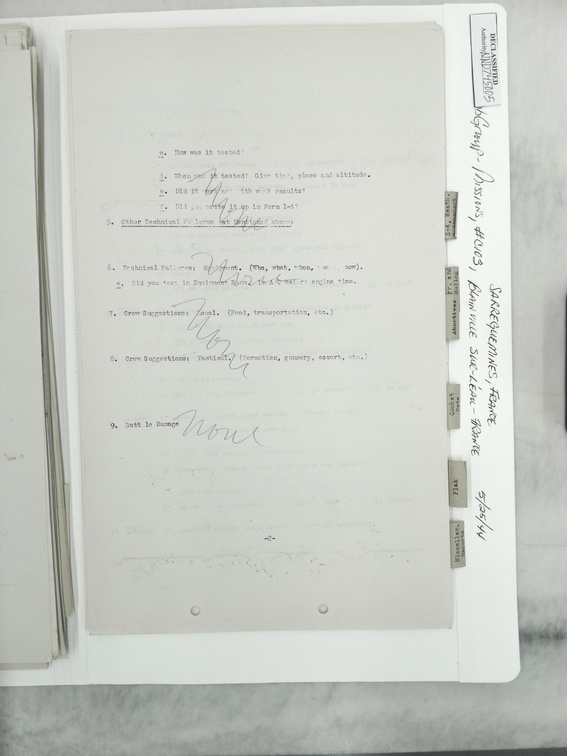 c. How was it tested?
d. When was it tested? Give time, place and altitude.
e. Did it work with results?
f. Did you write it up in Form 1-A?
None
5. Other Technical Failures not Mentioned above
6. Technical Failures: Equipment. (Who, what, when, how).
None
a. Did you test in Equipment Room. In A/C before engine time.
7. Crew Suggestions: Local. (Food, transportation, etc.)
None
8. Crew Suggestions: Tactical. (Formation, gunnery, escort, etc.)
9. Battle Damage None
-2-
DECLASSIFIED
Authority NND 745005
Group - Missions, #C103, SARREGUEMINES, FRANCE
BLAINVILLE SUR-L'EAU - FRANCE 5/25/44
Abortives
Combat
Flak
Miscellan.